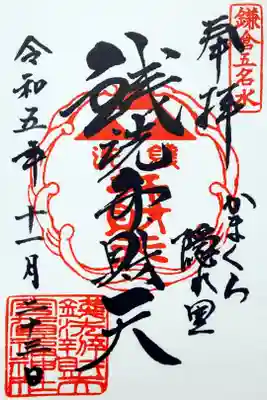 鎌倉五名水
奉拝
かまくら
隠れ里
銭洗弁財天
令和五年十一月二十三日